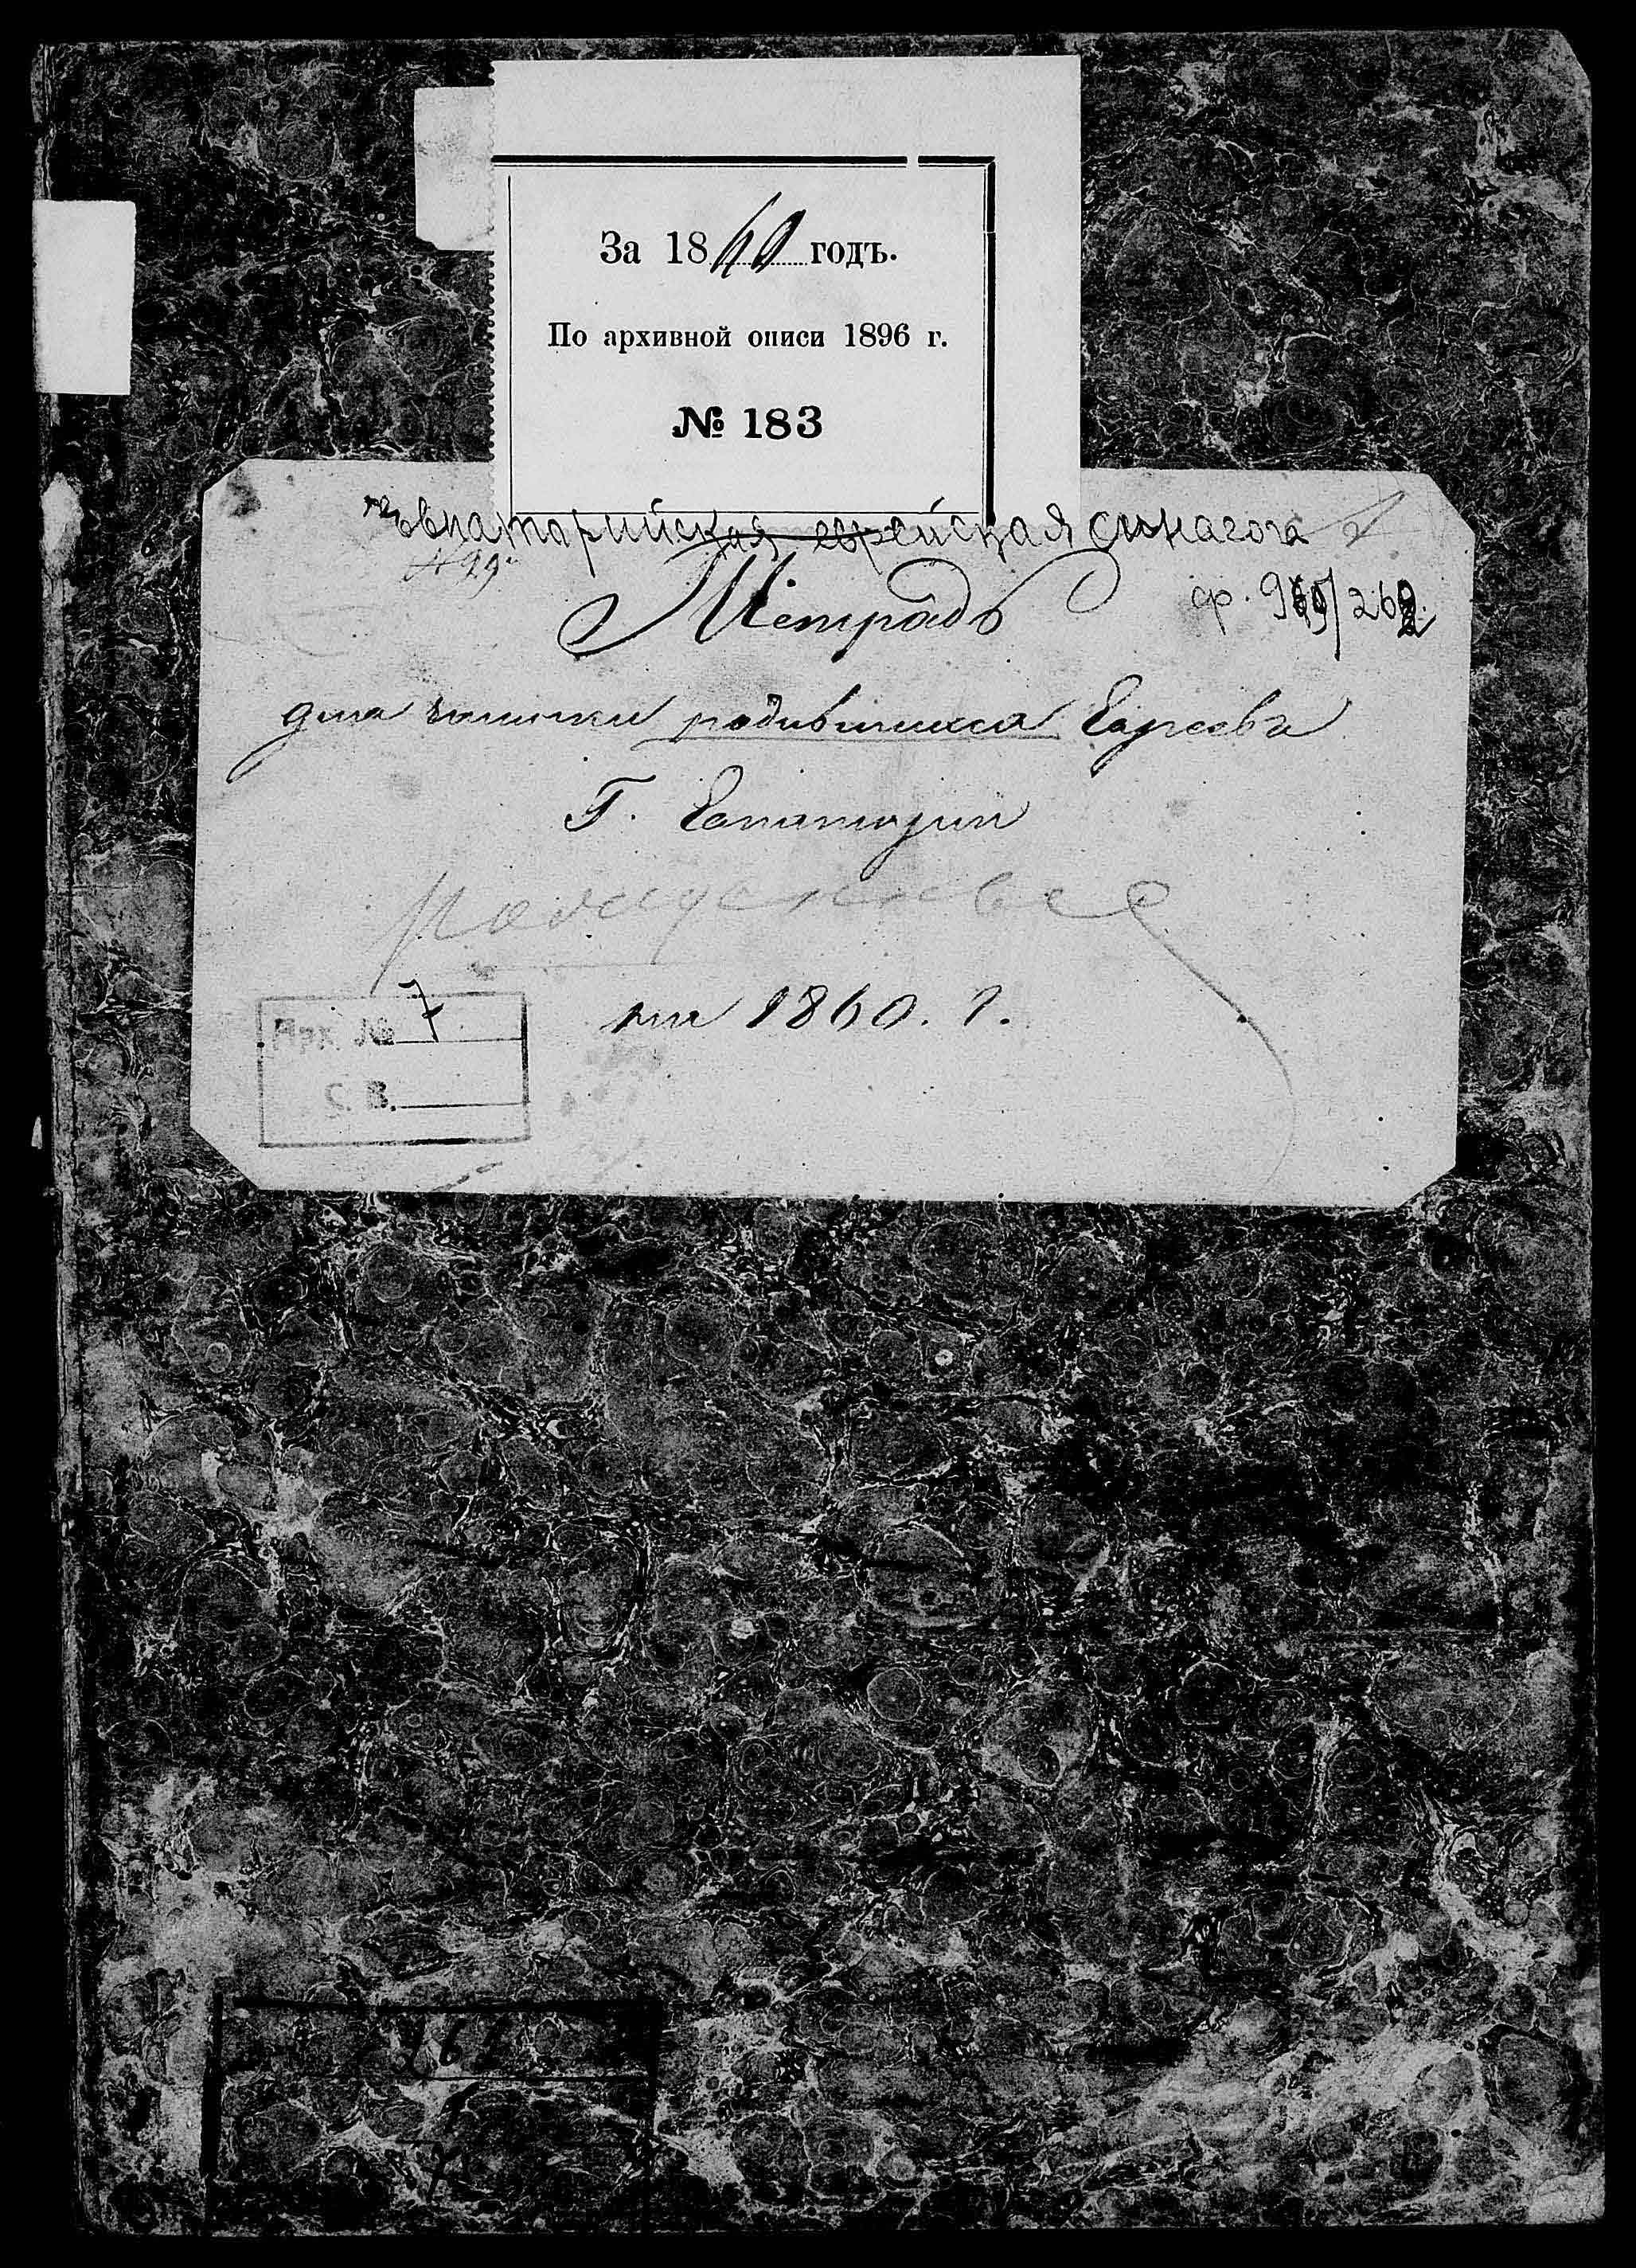 За 1860 годъ.
По архивной описи 1896 г.
№ 183
Евпаторийская еврейская синагога
№ 99
Тетрадь
ф. 262
для записки родившихся Евреевъ
Г. Евпаторіи
Рожденные
на 1860. г.
Арх. № 7
С. В.
262
1
7